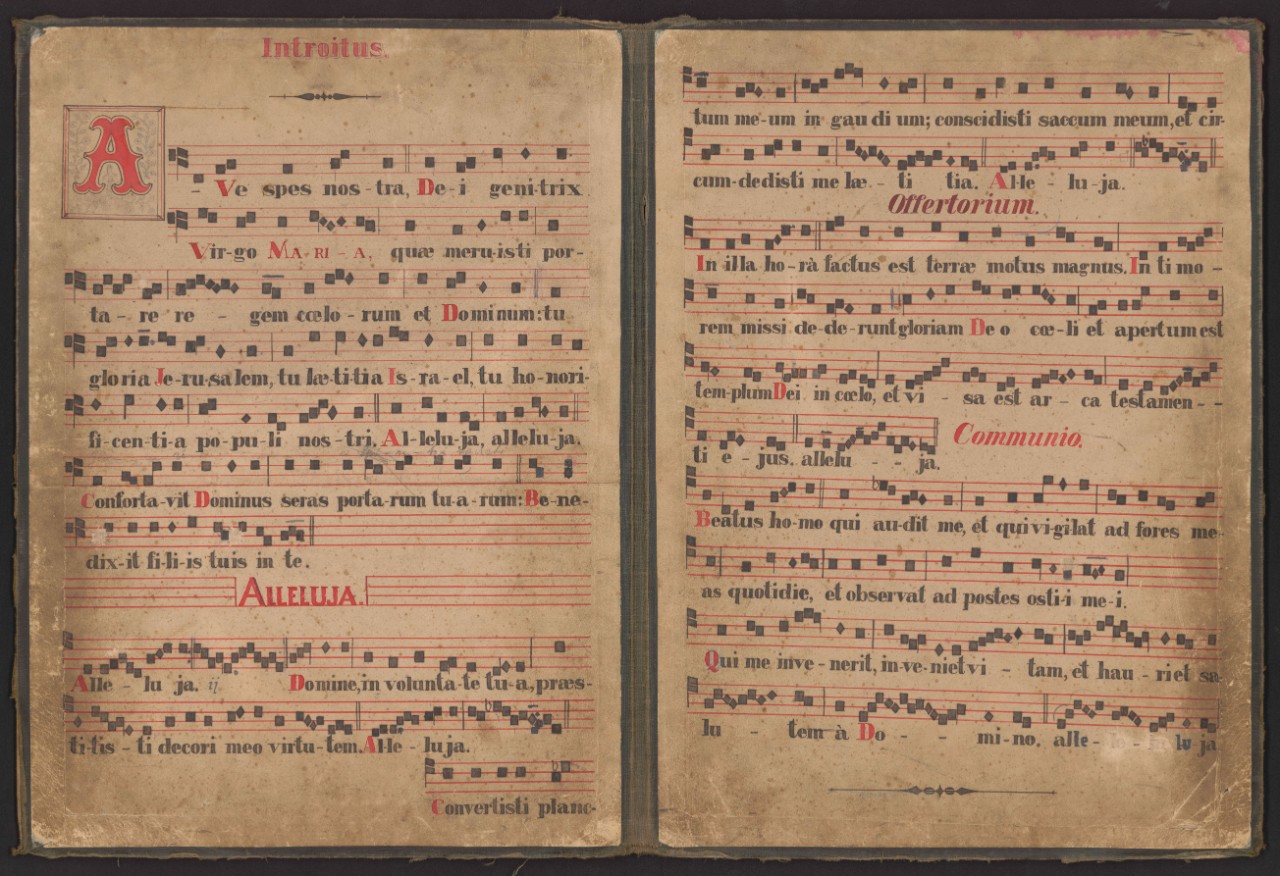 Introitus.
A
Ve spes nos-tra, De-i genitrix
Vir-go MA-RI-A, quæ meru-isti por-
ta-re re-gem cœlo-rum et Dominum: tu
gloria Je-ru-salem, tu læ-ti-tia Is-ra-el, tu ho-nori-
fi-cen-ti-a po-pu-li nos-tri. Al-lelu-ja, allelu-ja.
Conforta-vit Dominus seras porta-rum tu-a-rum: Be-ne-
dix-it fi-li-is tuis in te.
ALLELUJA.
Alle-lu ja. ij. Domine, in volunta-te tu-a, præs-
ti-tis-ti decori meo virtu-tem. Alle-lu ja.
Convertisti planc-
tum me-um in gau di um; conscidisti saccum meum, et cir-
cum-dedisti me læ-ti tia. Al-le-lu-ja.
Offertorium.
In illa ho-rà factus est terræ motus magnus. In ti mo-
rem missi de-de-runt gloriam De o cœ-li et apertum est
tem-plum Dei in cœlo, et vi-sa est ar-ca testamen--
ti e-jus. allelu--ja.
Communio.
Beatus ho-mo qui au-dit me, et qui vi-gi-lat ad fores me-
as quotidie, et observat ad postes osti-i me-i.
Qui me inve-nerit, in-ve-niet vi-tam, et hau-riet sa-
lu-tem à Do--mi-no. alle-lu ja